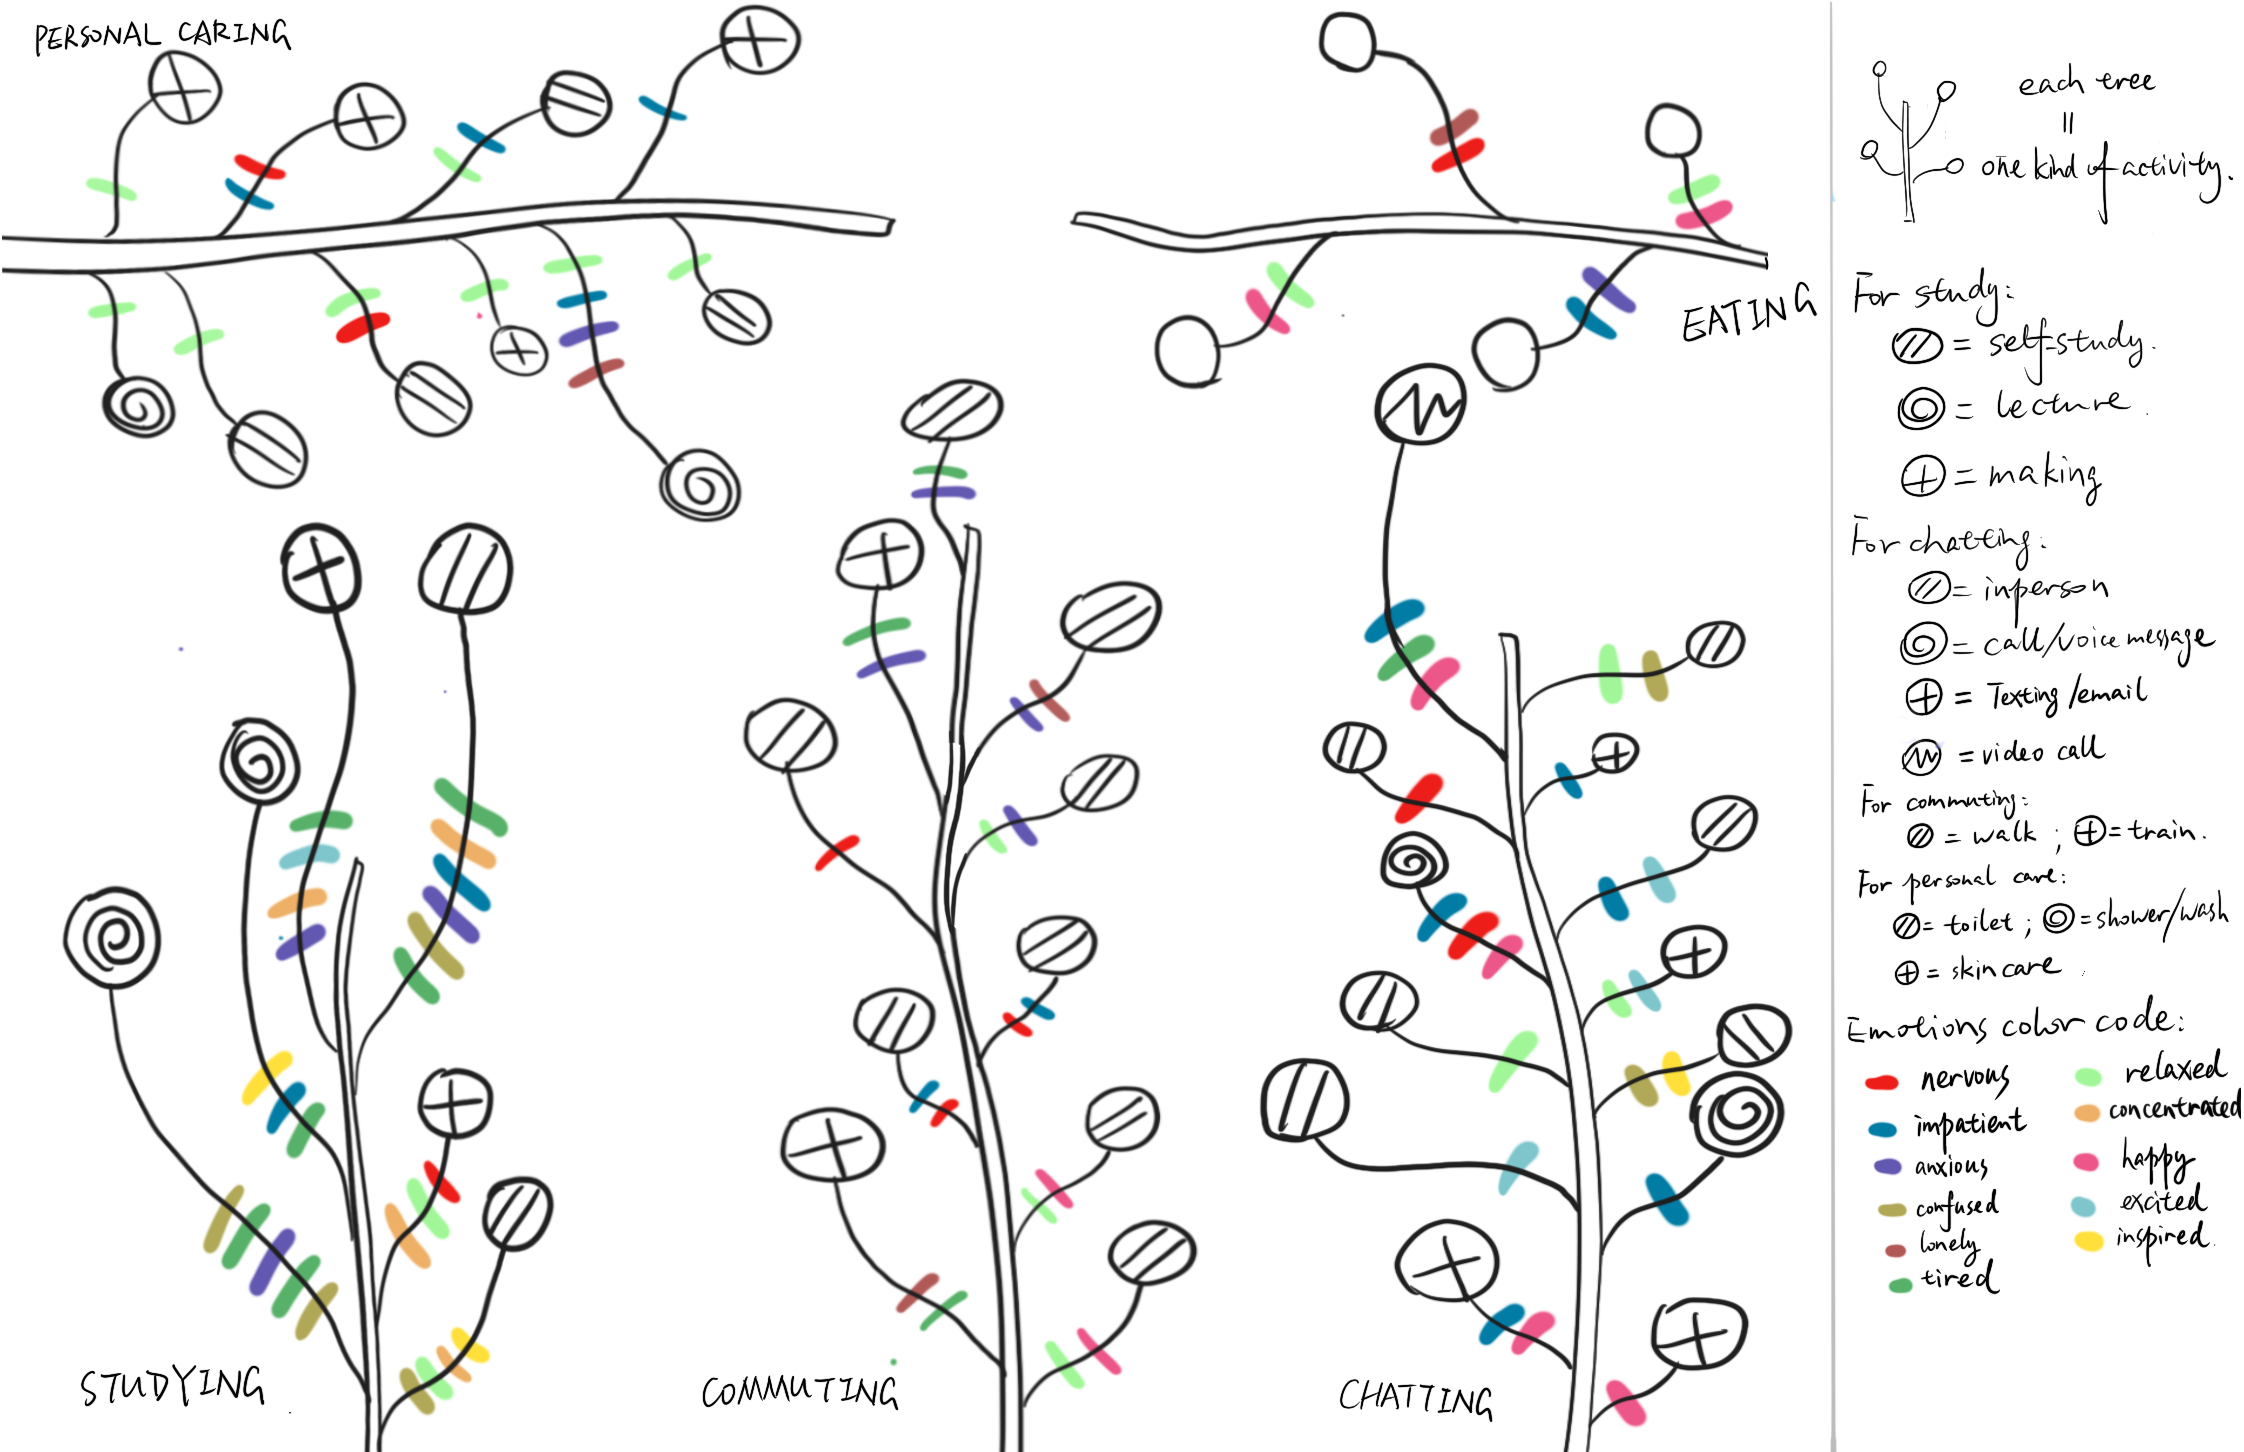 PERSONAL CARING
EATING
STUDYING
COMMUTING
CHATTING
each tree
=
one kind of activity.
For study:
= self-study.
= lecture.
= making
For chatting:
= inperson
= call/voice message
= Texting/email
= video call
For commuting:
= walk ; = train.
For personal care:
= toilet ; = shower/wash
= skin care
Emotions color code:
nervous
impatient
anxious
confused
lonely
tired
relaxed
concentrated
happy
excited
inspired.